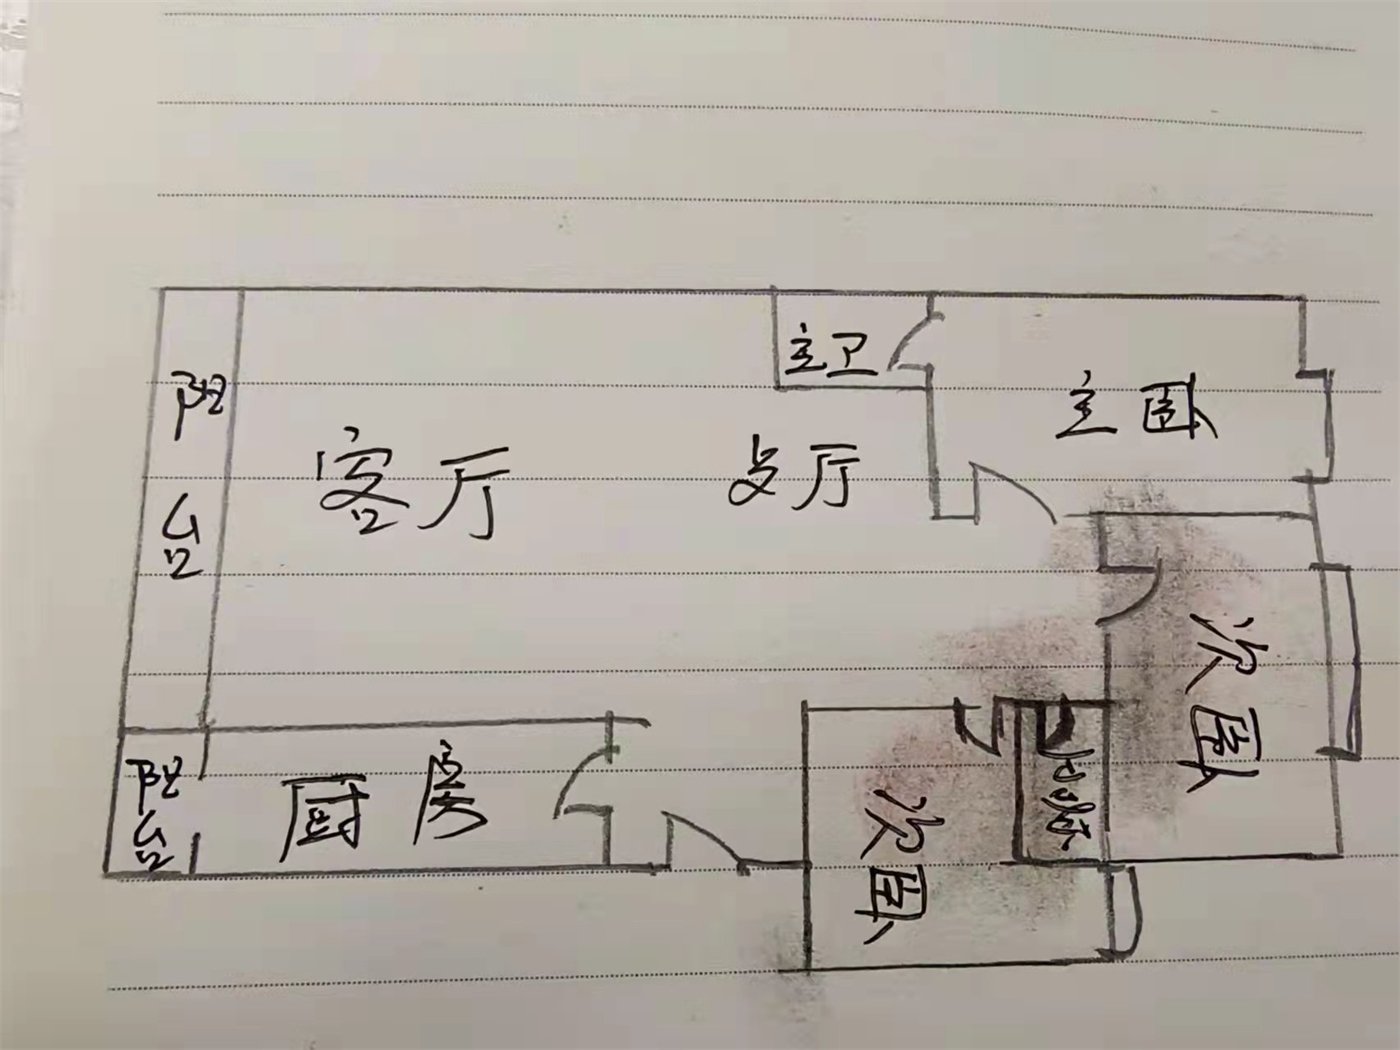 主卫
阳台
主卧
客厅
餐厅
次卧
阳台
厨房
次卧